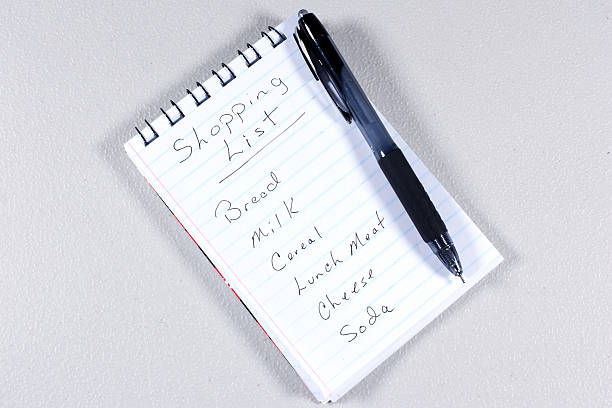 Shopping
List
Bread
Milk
Cereal
Lunch Meat
Cheese
Soda